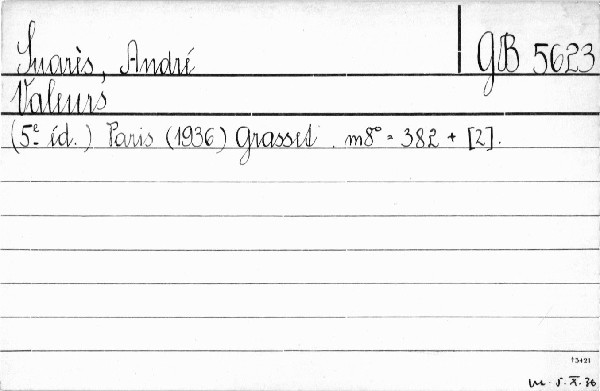 Suarès, André
GB 5623
Valeurs
(5e éd.) Paris (1936) Grasset. m8° = 382 + [2].
13421
5. X. 36